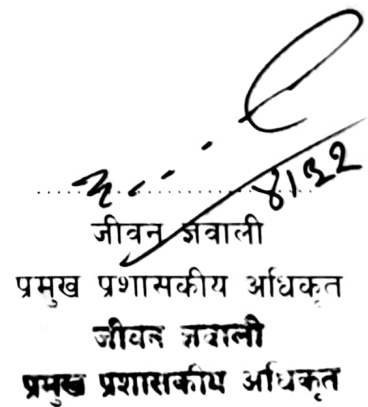 ४।३२
जीवन ज्ञवाली
प्रमुख प्रशासकीय अधिकृत
जीवन ज्ञवाली
प्रमुख प्रशासकीय अधिकृत